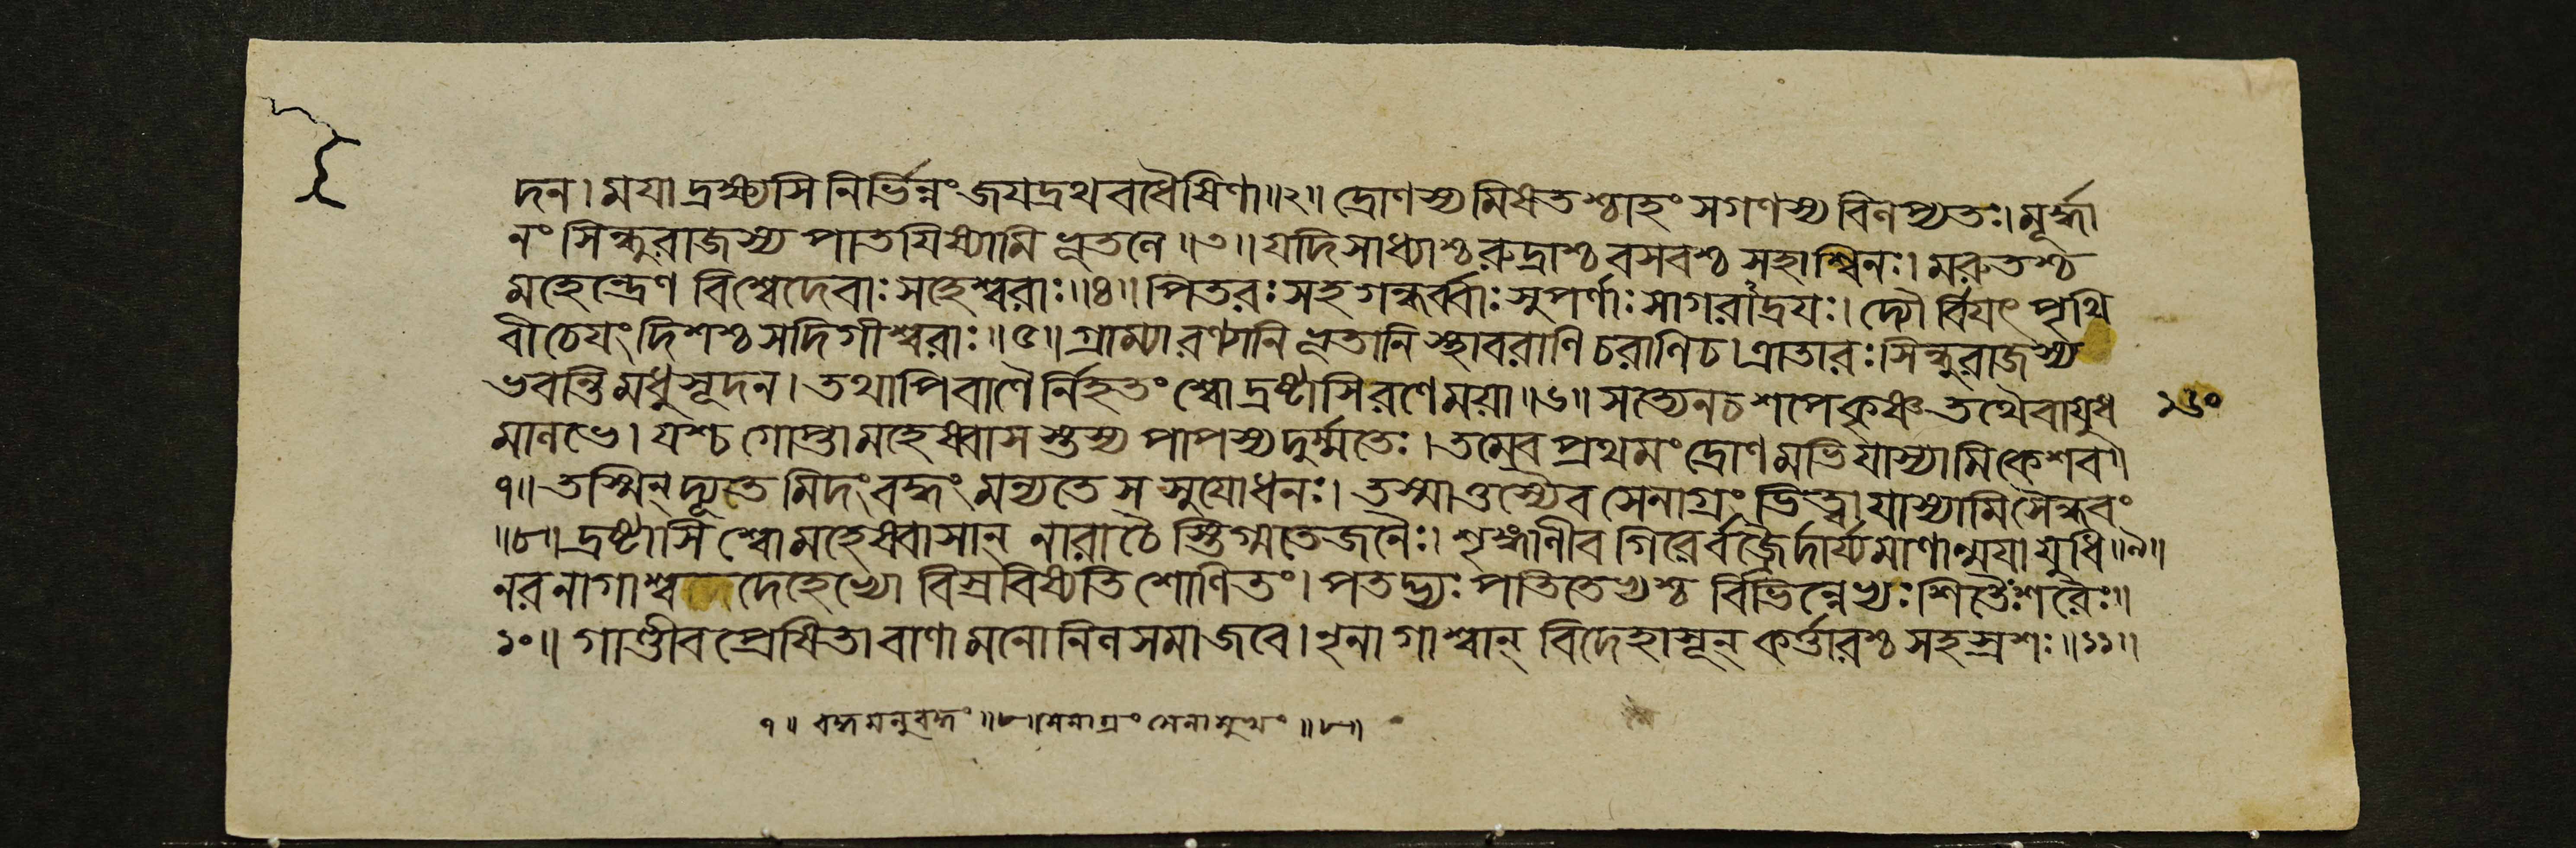 দন। ময়া দ্রক্ষ্যসি নির্ভিন্নং জয়দ্রথবধৈষিণা॥২॥ দ্রোণস্য মিষতশ্চাহং সগণস্য বিলপ্যতঃ। মূর্দ্ধা
নং সিন্ধুরাজস্য পাতয়িষ্যামি ভূতলে॥৩॥ যদি সাধ্যাশ্চ রুদ্রাশ্চ বসবশ্চ সহাশ্বিনঃ। মরুতশ্চ
মহেন্দ্রেণ বিশ্বেদেবাঃ সহেশ্বরাঃ॥৪॥ পিতরঃ সহগন্ধর্ব্বাঃ সুপর্ণাঃ সাগরাদ্রয়ঃ। দ্যৌর্বিয়ৎ পৃথি
বী চেয়ং দিশশ্চ সদিগীশ্বরাঃ॥৫॥ গ্রাম্যারণ্যানি ভূতানি স্থাবরাণি চরাণি চ। ত্রাতারঃ সিন্ধুরাজস্য
ভবন্তি মধুসূদন। তথাপি বাণৈর্নিহতং শ্বো দ্রষ্টাসি রণে ময়া॥৬॥ সত্যেন চ শপে কৃষ্ণ তথৈবায়ুধ
১৬০
মালভে। যশ্চ গোপ্তা মহেষ্বাসস্তস্য পাপস্য দুর্ম্মতেঃ। তমেব প্রথমং দ্রোণমভিযাস্যামি কেশব॥
৭॥ তস্মিন্ দ্যূতমিদং বদ্ধং মন্যতে স সুযোধনঃ। তস্মাত্তস্যৈব সেনাগ্রং ভিত্ত্বা যাস্যামি সৈন্ধবং
॥৮॥ দ্রষ্টাসি শ্বো মহেষ্বাসান্ নারাচৈস্তিগ্মতেজনৈঃ। শৃঙ্গাণীব গিরের্বজ্রৈর্দার্য্যমাণান্ময়া যুধি॥৯॥
নরনাগাশ্ব দেহেভ্যো বিস্রবিষ্যতি শোণিতং। পতদ্ভ্যঃ পতিতেভ্যশ্চ বিভিন্নেভ্যঃ শিতৈঃ শরৈঃ॥
১০॥ গাণ্ডীবপ্রেষিতা বাণা মনোনিলসমা জবে। নৃনাগাশ্বান্ বিদেহাসূন্ কর্ত্তারশ্চ সহস্রশঃ॥১১॥
৭॥ বদ্ধমনুবদ্ধং॥৮॥ সেনাগ্রং সেনামুখং॥৮॥